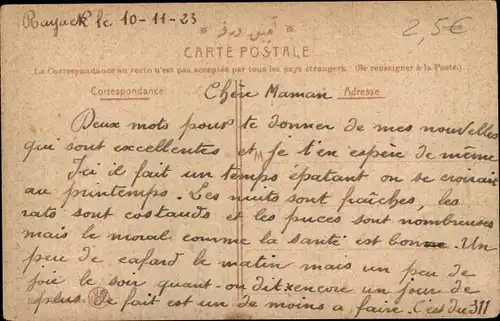 Rayack le 10-11-23
2,5€
CARTE POSTALE
La Correspondance au recto n'est pas acceptée par tous les pays étrangers. (Se renseigner à la Poste.)
Correspondance
Adresse
Chère Maman
Deux mots pour te donner de mes nouvelles
qui sont excellentes et je t'en espère de même
Ici il fait un temps épatant on se croirait
au printemps. Les nuits sont fraîches, les
rats sont costauds et les puces sont nombreuses
mais le moral comme la santé est bonne. Un
peu de cafard le matin mais un peu de
joie le soir quant on dit encore un jour de
plus de fait est un de moins a faire. C'est du 311